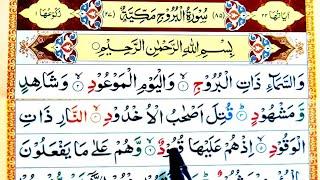 اٰيَاتُهَا ٢٢ (٨٥) سُوْرَةُ الْبُرُوْجِ مَكِّيَّةٌ (٢٧) رُكُوْعُهَا ١
بِسْمِ اللّٰهِ الرَّحْمٰنِ الرَّحِيْمِ
وَالسَّمَآءِ ذَاتِ الْبُرُوْجِ ۙ وَالْيَوْمِ الْمَوْعُوْدِ ۙ وَشَاهِدٍ
وَّمَشْهُوْدٍ ؕ قُتِلَ اَصْحٰبُ الْاُخْدُوْدِ ۙ النَّارِ ذَاتِ
الْوَقُوْدِ ۙ اِذْهُمْ عَلَيْهَا قُعُوْدٌ ۙ وَّهُمْ عَلٰى مَا يَفْعَلُوْنَ